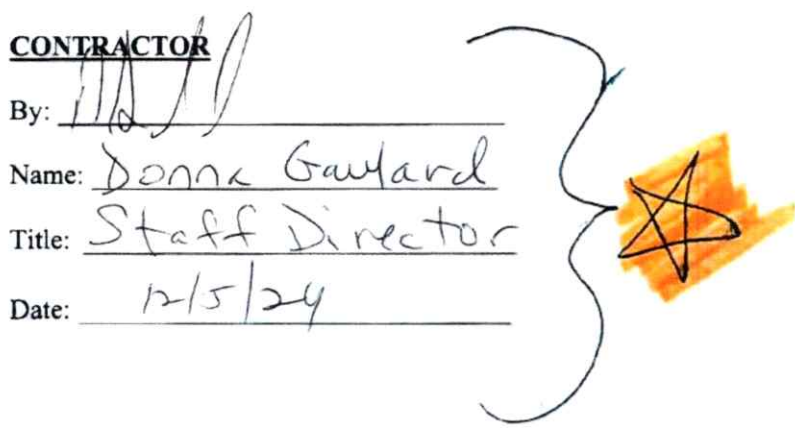 CONTRACTOR
By:
Name: Donna Gaulard
Title: Staff Director
Date: 12/5/24